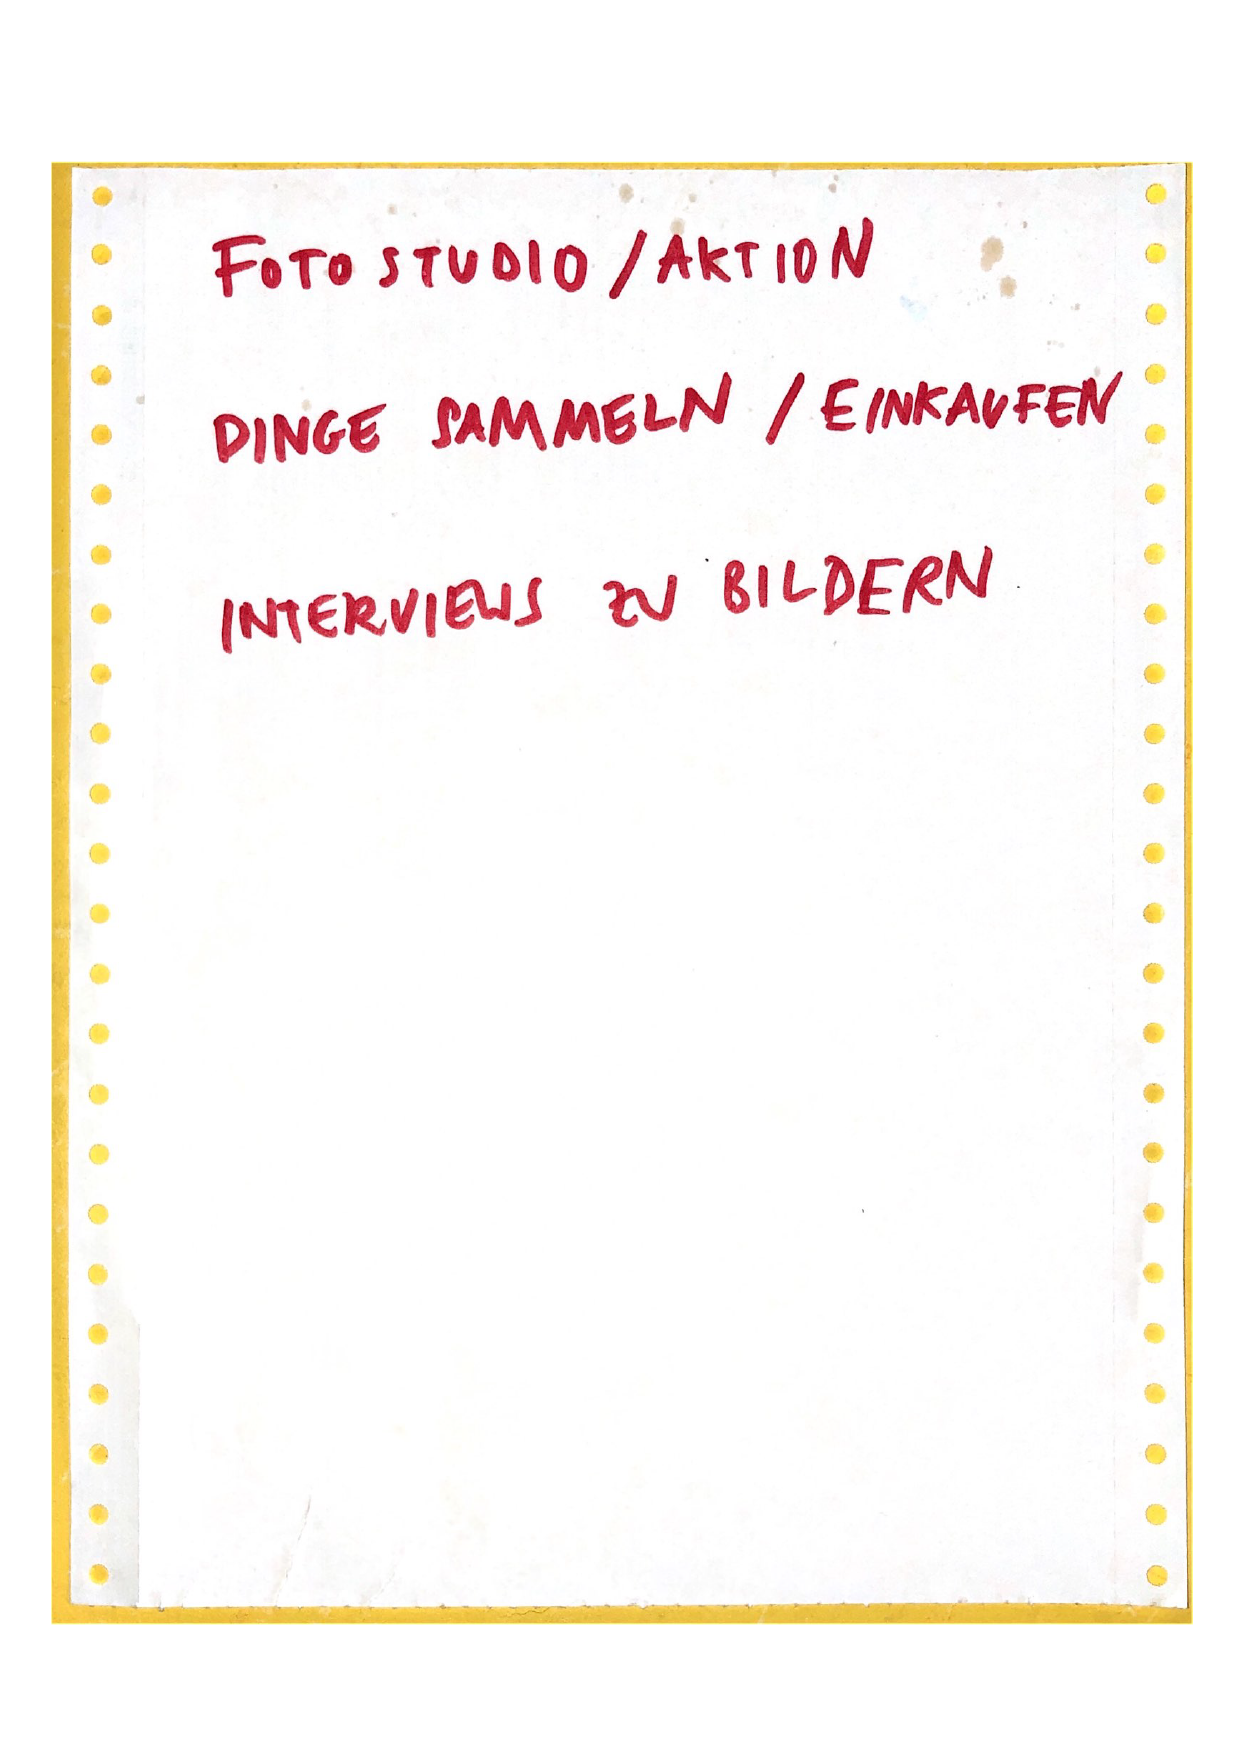 FOTOSTUDIO / AKTION
DINGE SAMMELN / EINKAUFEN
INTERVIEWS ZU BILDERN